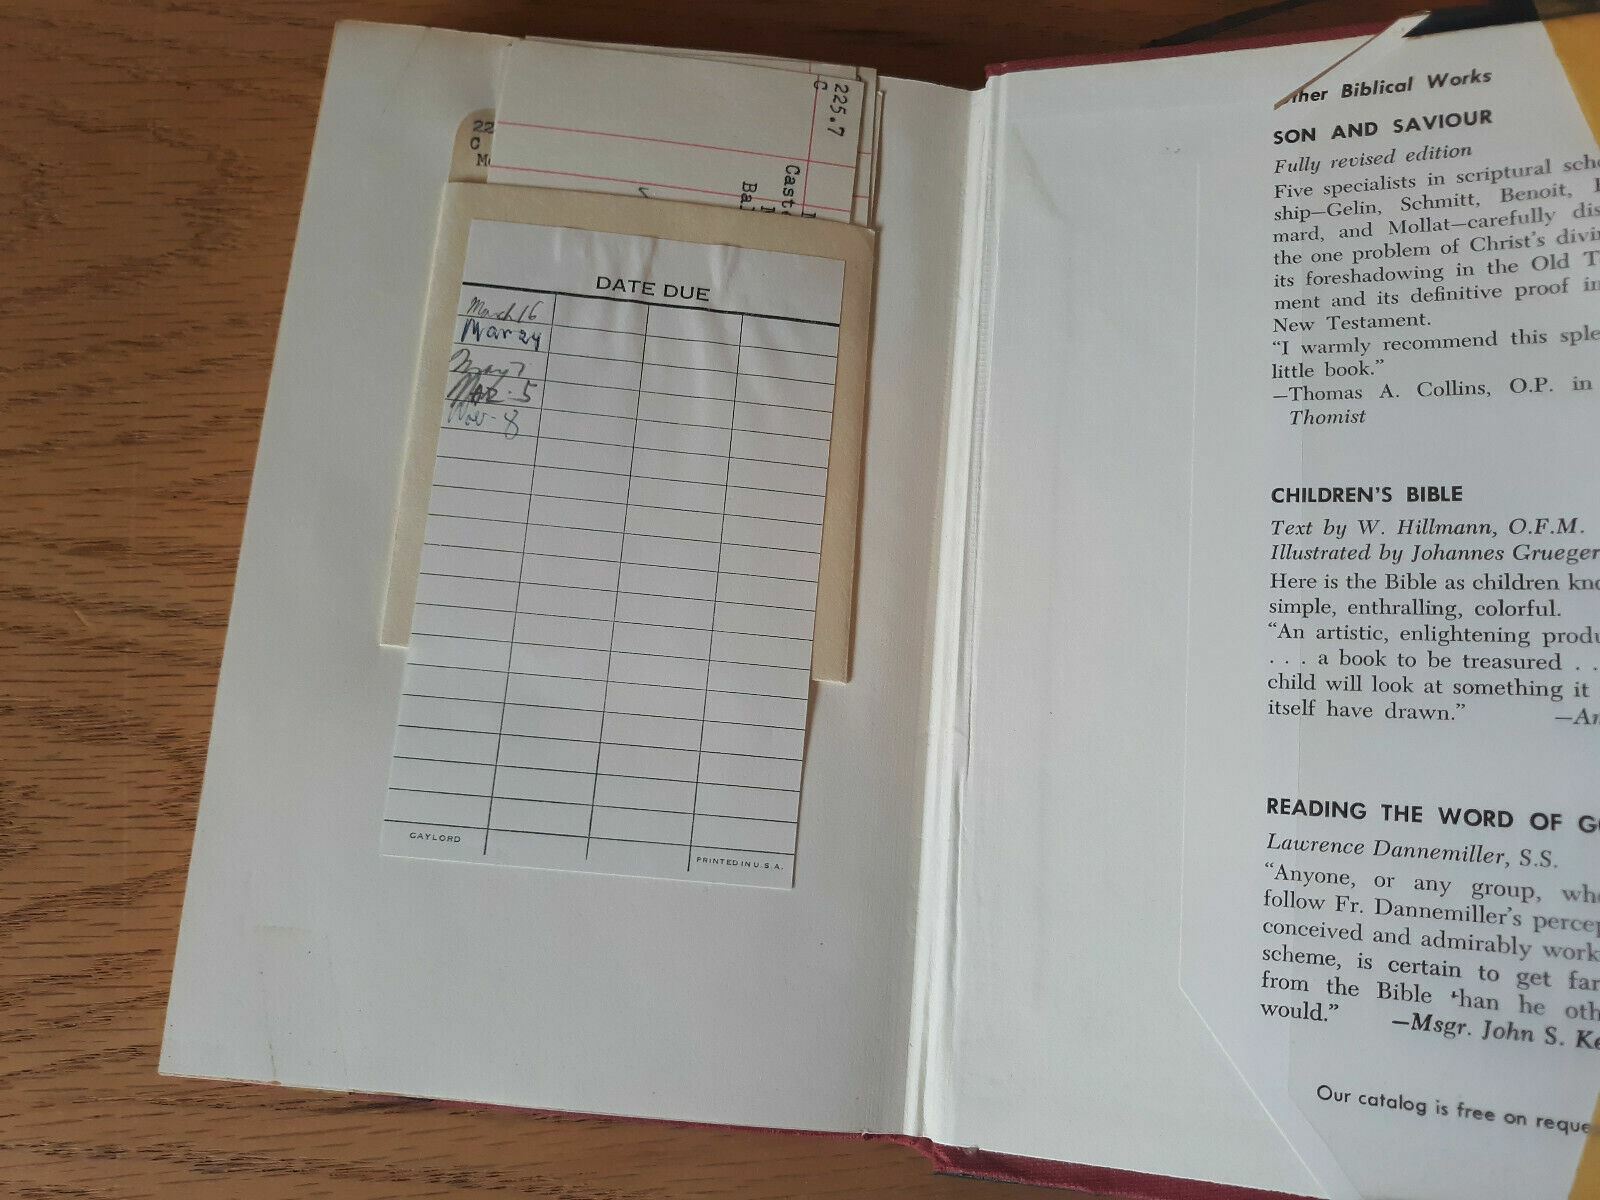 225.7
C
Cast
Ba
22
C
M
DATE DUE
March 16
Mar 24
May 7
Mar. 5
Nov - 8
GAYLORD
PRINTED IN U.S.A.
Biblical Works
SON AND SAVIOUR
Fully revised edition
Five specialists in scriptural scho
ship—Gelin, Schmitt, Benoit,
mard, and Mollat—carefully dis
the one problem of Christ's divi
its foreshadowing in the Old T
ment and its definitive proof in
New Testament.
“I warmly recommend this sple
little book.”
—Thomas A. Collins, O.P. in
Thomist
CHILDREN'S BIBLE
Text by W. Hillmann, O.F.M.
Illustrated by Johannes Grueger
Here is the Bible as children kno
simple, enthralling, colorful.
“An artistic, enlightening produ
. . . a book to be treasured . .
child will look at something it
itself have drawn.” —An
READING THE WORD OF GO
Lawrence Dannemiller, S.S.
“Anyone, or any group, who
follow Fr. Dannemiller's percep
conceived and admirably work
scheme, is certain to get far
from the Bible than he oth
would.” —Msgr. John S. Ke
Our catalog is free on reque